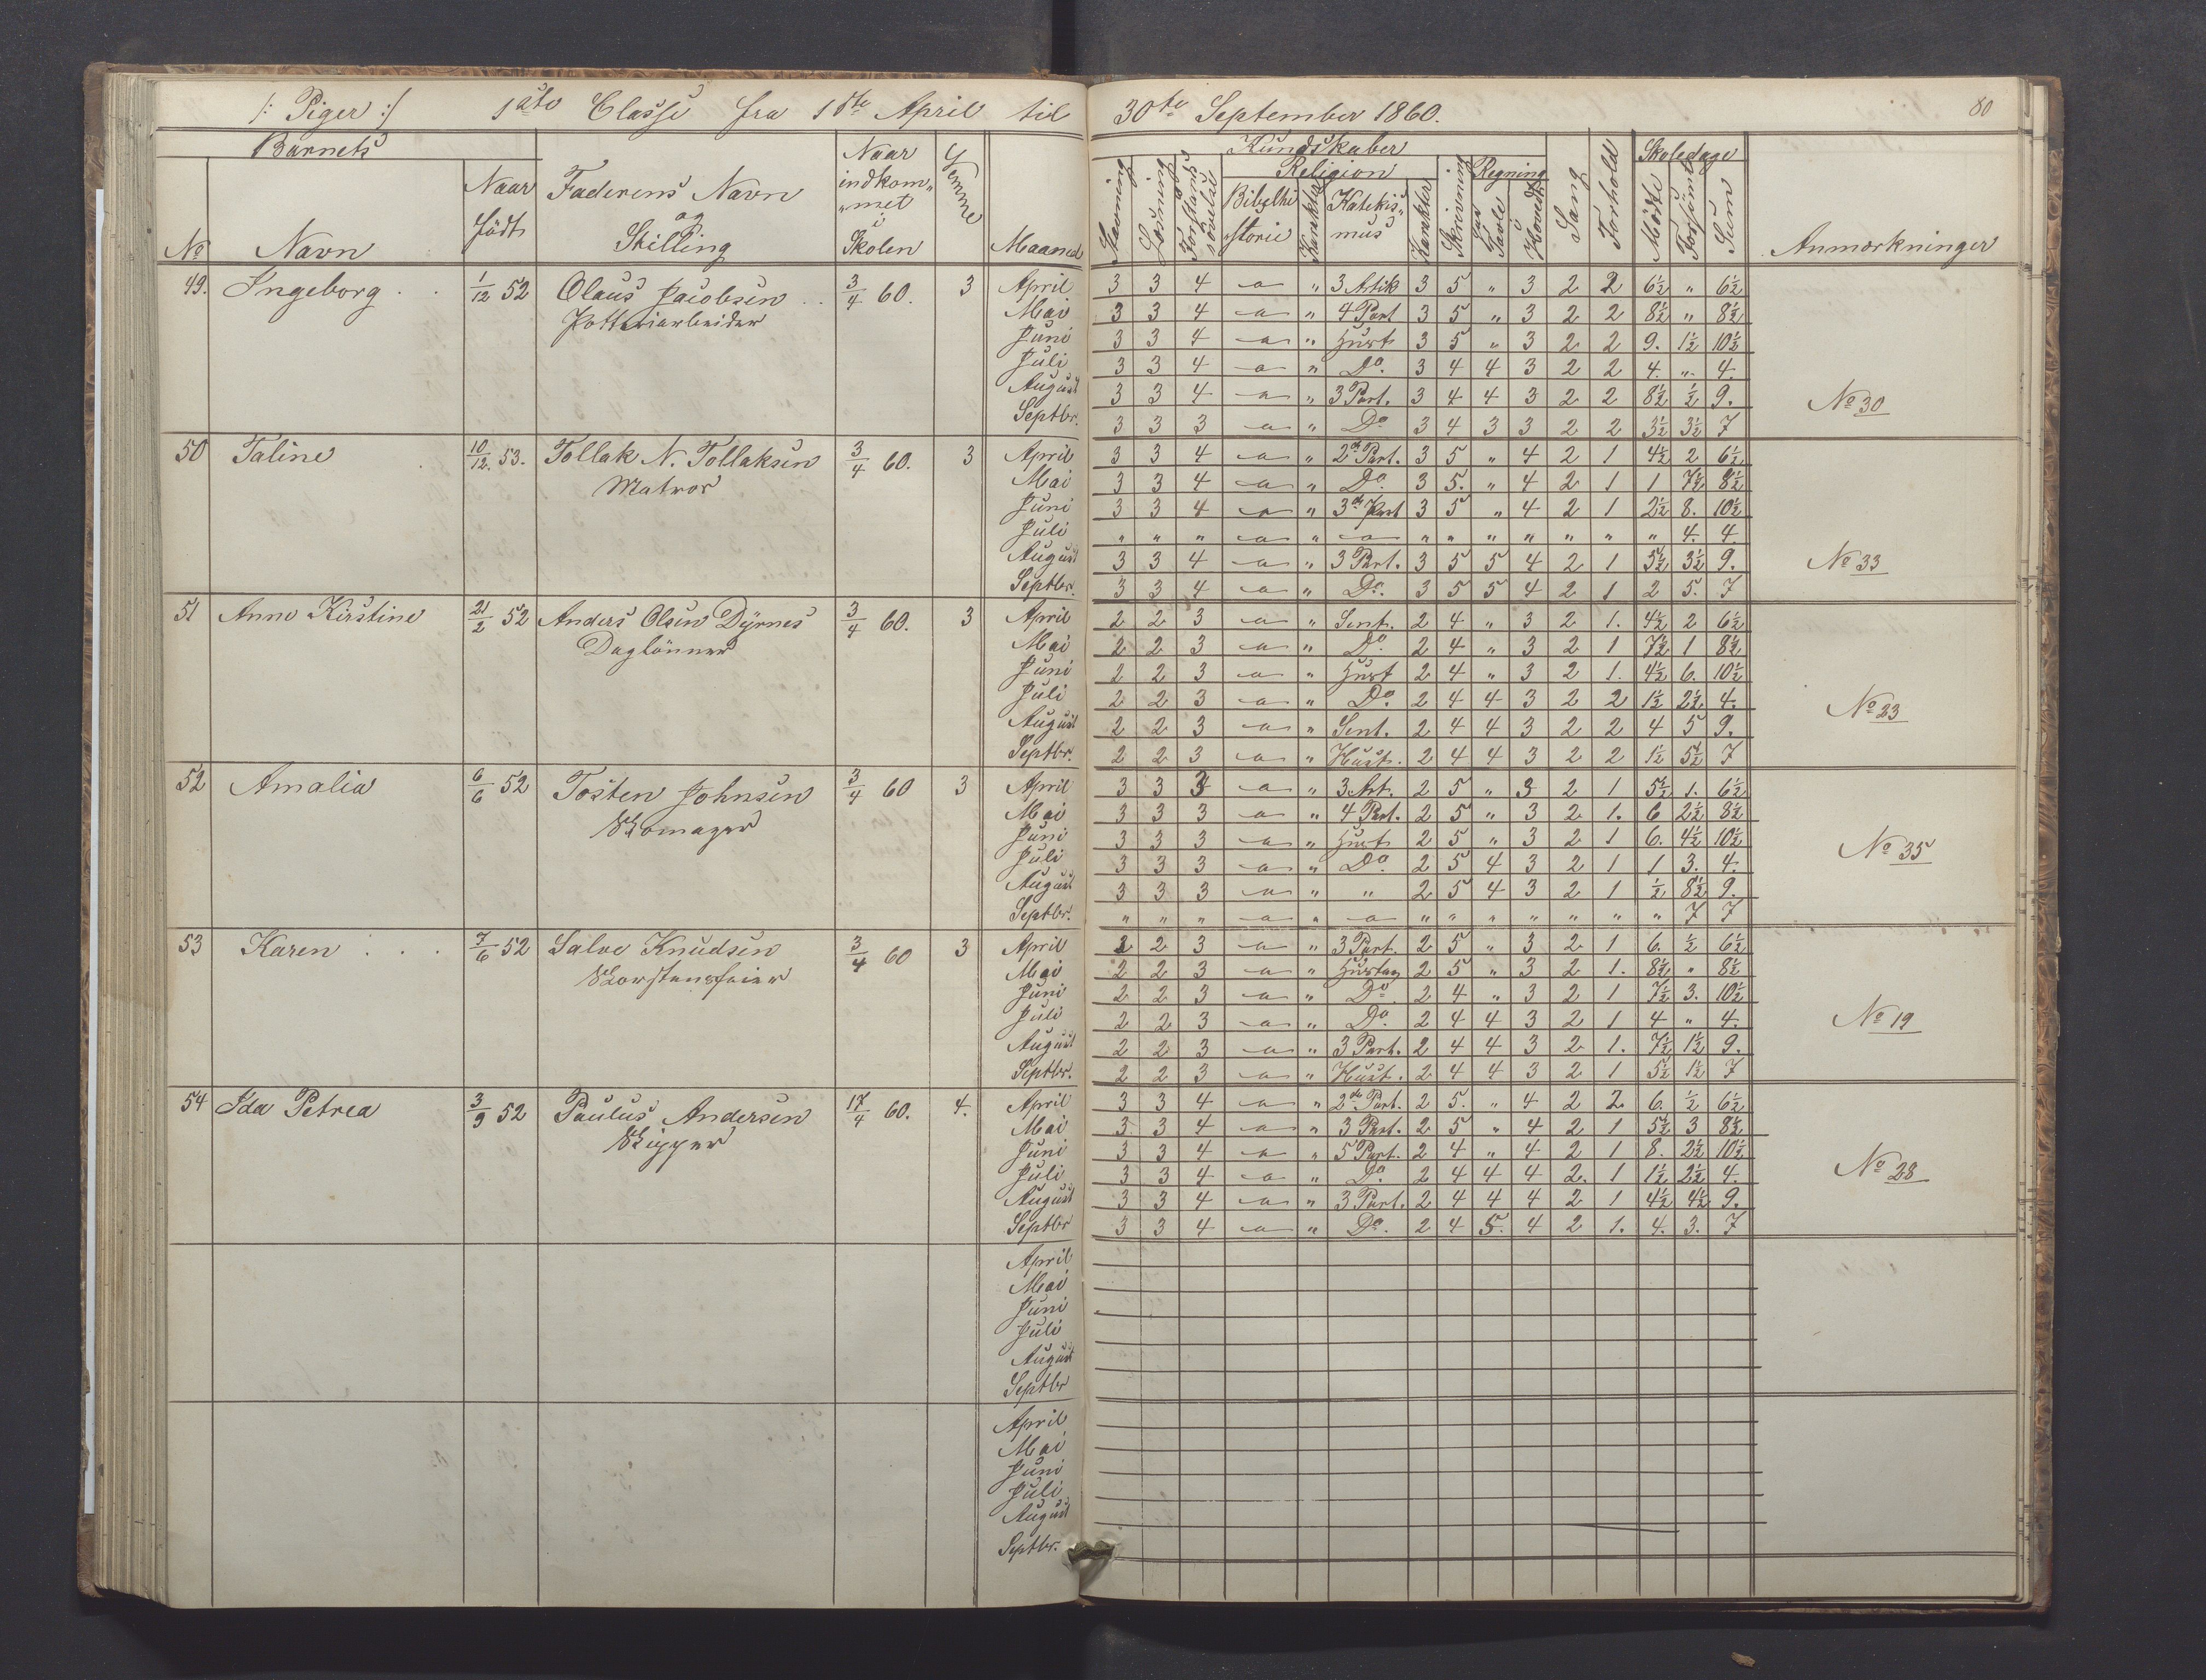 /: Piger :/ 1ste Classe fra 1ste April til 30te September 1860. 80
Barnets Kundskaber Skoledage
No Navn Naar födt Faderens Navn og Stilling Naar indkom„ „met i Skolen Evne Maaned Stavning Læsning Forstands övelse Religion Bibelhi „storie Karakter Katekis„ mus Karakter Skrivning Regning paa Tavle i Hovedet Sang Forhold Mödte Forsömte Sum Anmærkninger
49. Ingeborg . . 1/12 52 Olaus Jacobsen . . 3/4 60. 3 April 3 3 4 a „ 3 Artik 3 5 „ 3 2 2 6½ „ 6½
Pottemiarbeider Mai 3 3 4 a „ 4 Part 3 5 „ 3 2 2 8½ „ 8½
Juni 3 3 4 a „ Hust 3 5 „ 3 2 2 9. 1½ 10½
Juli 3 3 4 a „ Do. 3 4 4 3 2 2 4. „ 4.
August 3 3 4 a „ 3 Part. 3 4 4 3 2 2 8½ ½ 9. No 30
Septbr. 3 3 3 a „ Do 3 4 3 3 2 2 3½ 3½ 7
50 Taline 10/12. 53. Tollak N. Tollaksen 3/4 60. 3 April 3 3 4 a „ 2de Part. 3 5 „ 4 2 1 4½ 2 6½
Matros Mai 3 3 4 a „ Do. 3 5. „ 4 2 1 1 7½ 8½
Juni 3 3 4 a „ 3de Part 3 5 „ 4 2 1 2½ 8. 10½
Juli „ „ „ a „ a „ „ „ „ „ „ „ 4. 4.
August 3 3 4 a „ 3 Part. 3 5 5 4 2 1 5½ 3½ 9. No 33
Septbr. 3 3 4 a „ Do. 3 5 5 4 2 1 2 5. 7
51 Anne Kirstine 21/2 52 Anders Olsen Dyrnes 3/4 60. 3 April 2 2 3 a „ Sent. 2 4 „ 3 2 1. 4½ 2 6½
Daglönner Mai 2 2 3 a „ Do. 2 4 „ 3 2 1 7½ 1 8½
Juni 2 2 3 a „ Hust 2 4 „ 3 2 1. 4½ 6. 10½
Juli 2 2 3 a „ Do. 2 4 4 3 2 2 1½ 2½ 4.
August 2 2 3 a „ Sent. 2 4 4 3 2 2 4 5 9. No 23
Septbr. 2 2 3 a „ Hust. 2 4 4 3 2 2 1½ 5½ 7
52 Amalia 6/6 52 Tosten Johnsen 3/4 60 3 April 3 3 3 a „ 3 Art. 2 5 „ 3 2 1 5½ 1. 6½
Skomager Mai 3 3 3 a „ 4 Part. 2 5 „ 3 2 1. 6 2½ 8½
Juni 3 3 3 a „ Hust 2 5 „ 3 2 1 6. 4½ 10½
Juli 3 3 3 a „ Do. 2 5 4 3 2 1 1 3. 4. No 35
August 3 3 3 a „ „ 2 5 4 3 2 1 ½ 8½ 9.
Septbr. „ „ „ a „ a „ „ „ „ „ „ „ 7 7
53 Karen . . . 7/6 52 Salve Knudsen 3/4 60 3 April 2 2 3 a „ 3 Part. 2 5 „ 3 2 1 6. ½ 6½
Skorstensfeier Mai 2 2 3 a „ Hustav 2 5 „ 3 2 1. 8½ „ 8½
Juni 2 2 3 a „ Do 2 4 „ 3 2 1 7½ 3. 10½
Juli 2 2 3 a „ Do. 2 4 4 3 2 1 4 „ 4. No 19
August 2 2 3 a „ 3 Part. 2 4 4 3 2 1. 7½ 1½ 9.
Septbr. 2 2 3 a „ Hust. 2 4 4 3 2 1 5½ 1½ 7
54 Ida Petrea 3/9 52 Paulus Andersen 17/4 60. 4. April 3 3 4 a „ 2de Part. 2 5. „ 4 2 2 6. ½ 6½
Skipper Mai 3 3 4 a „ 3 Part. 2 5 „ 4 2 1 5½ 3 8½
Juni 3 3 4 a „ 5 Part. 2 4 „ 4 2 1 8. 2½ 10½
Juli 3 3 4 a „ Do 2 4 4 4 2. 1 1½ 2½ 4. No 28
August 3 3 4 a „ 3 Part. 2 4 4 4 2 1 4½ 4½ 9.
Septbr 3 3 4 a „ Do. 2 4 5. 4 2 1. 4. 3. 7
April
Mai
Juni
Juli
August
Septbr
April
Mai
Juni
Juli
August
Septbr.